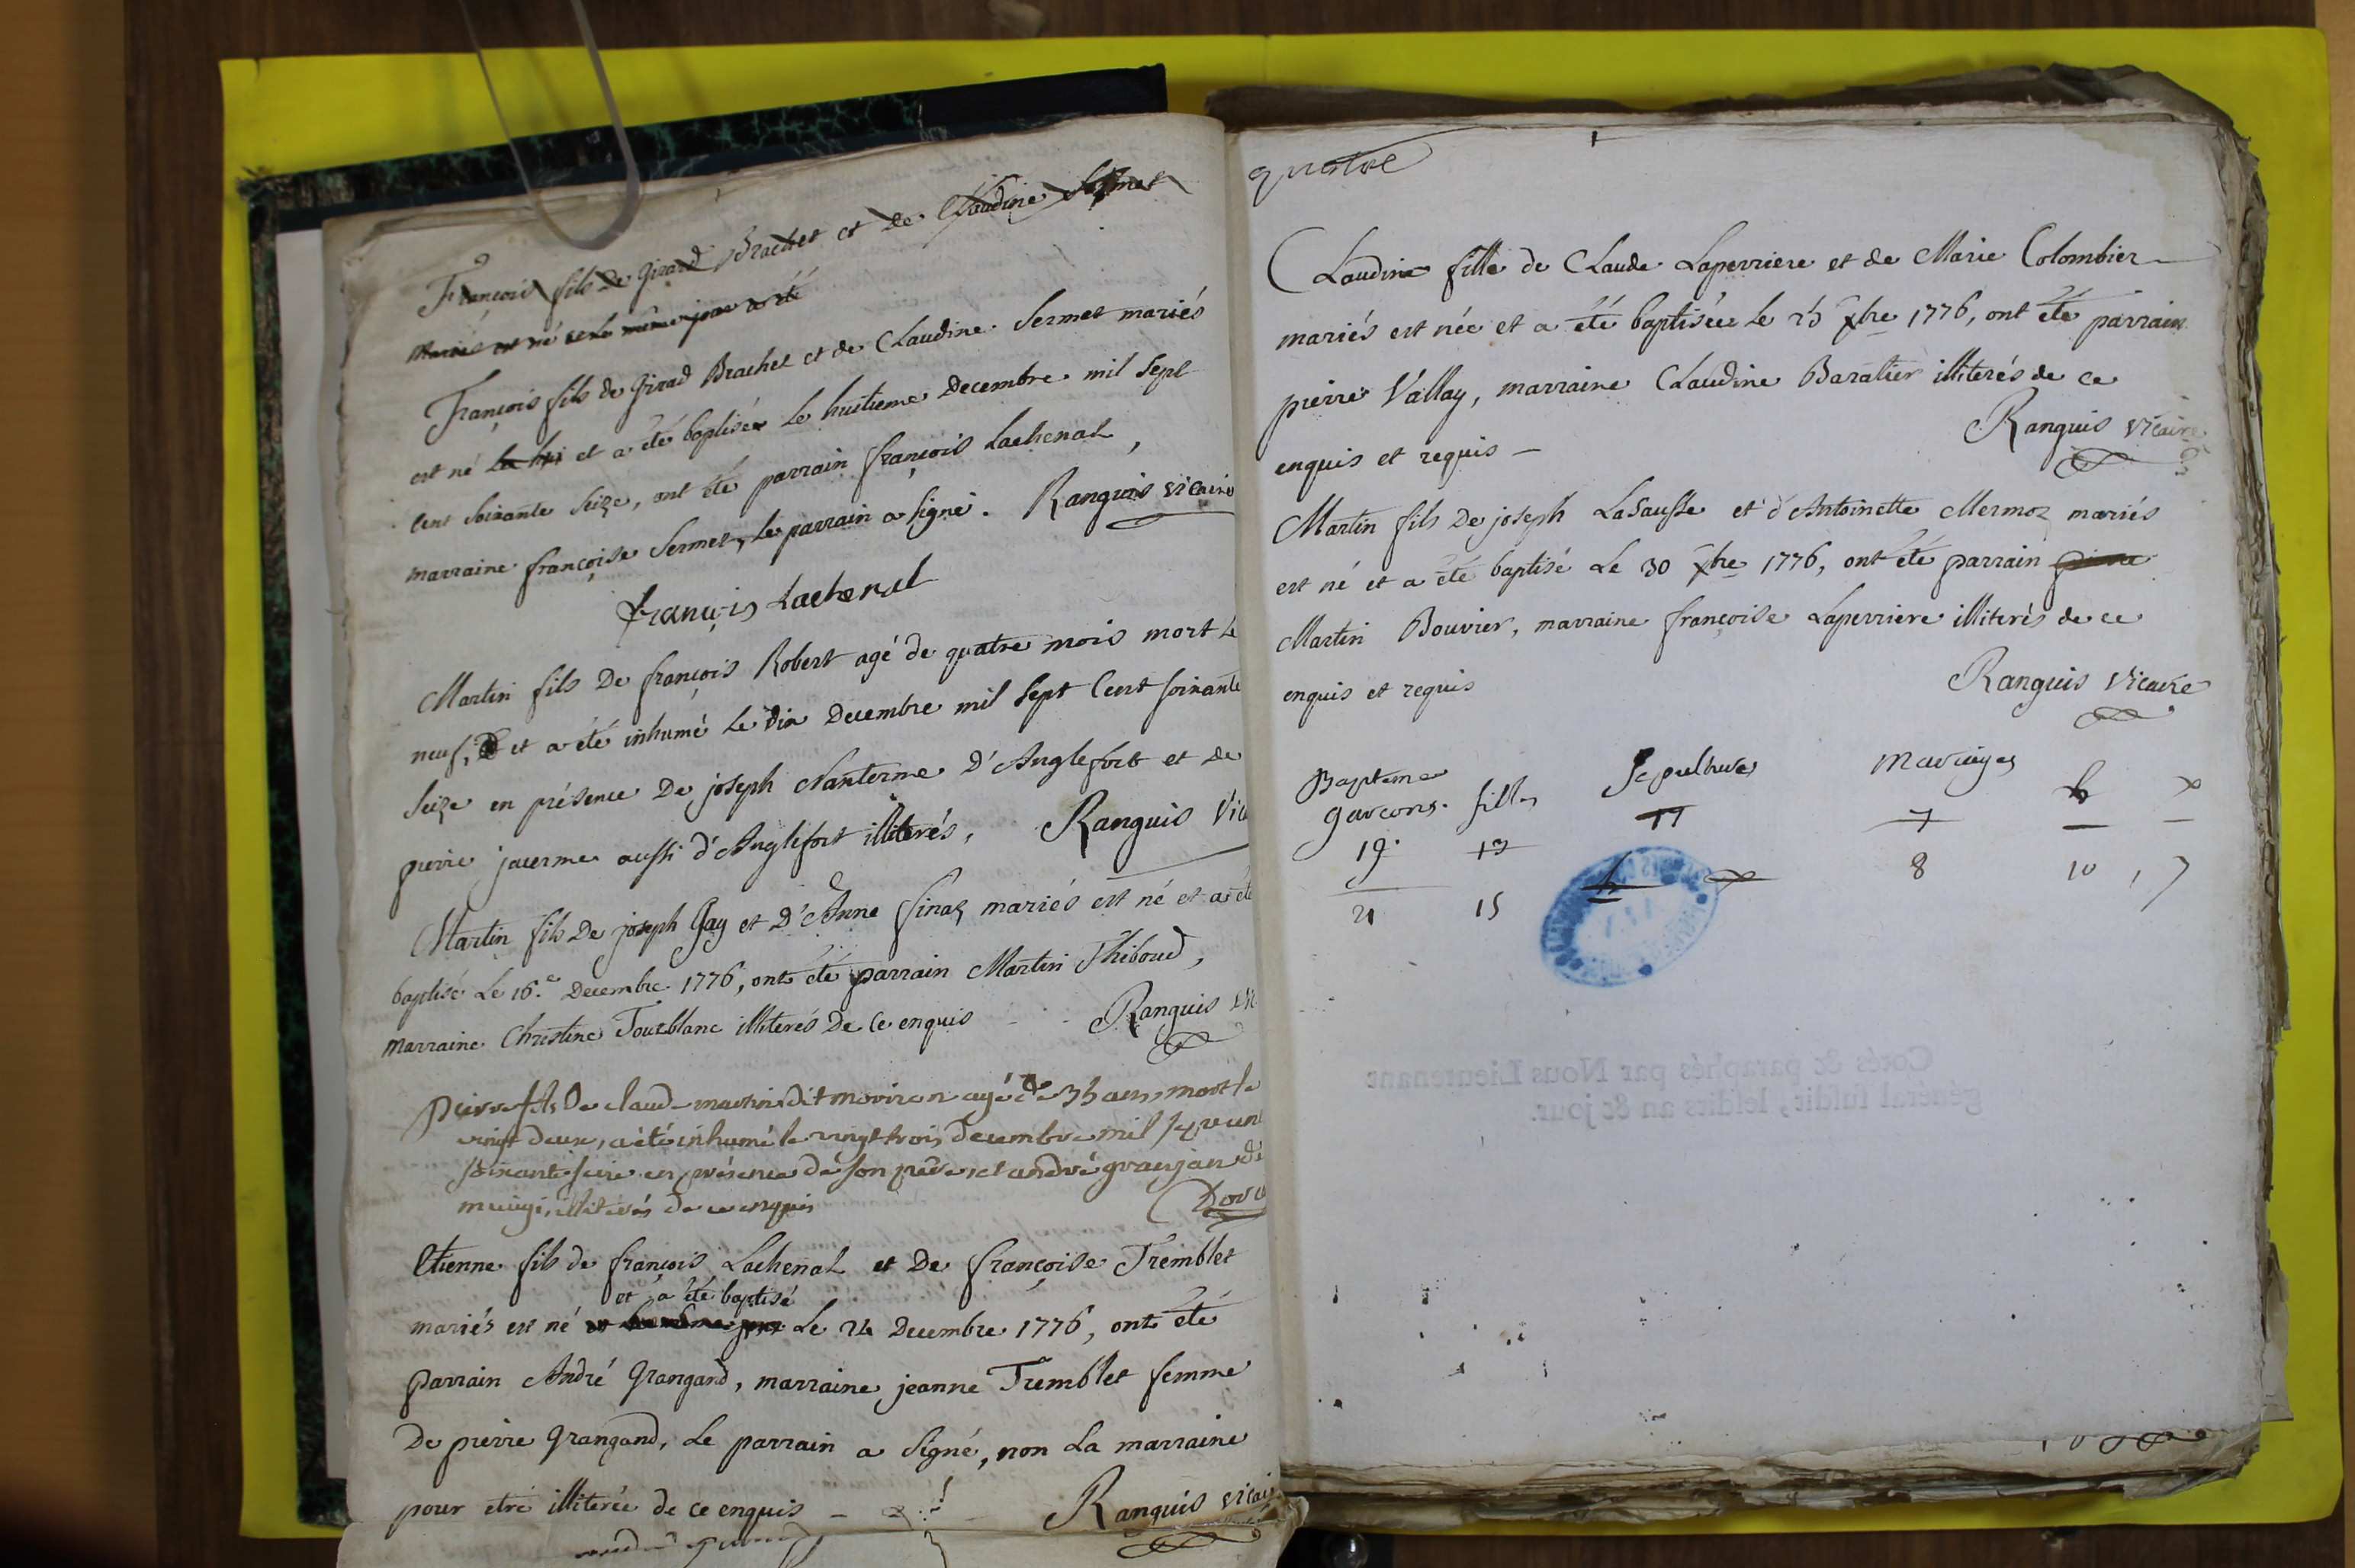 François fils de Girard Brachet et de Claudine Sermet
mariés est né et le même jour a été
François fils de Girad Brachet et de Claudine Sermet mariés
est né et a été baptisé le huitieme Decembre mil sept
cent soixante seize, ont été parrain françois Lachenal,
marraine françoise Sermet, le parrain a signé. Ranguis vicaire
françois Lachenal
Martin fils De françois Robert agé de quatre mois mort le
neuf, et a été inhumé le dix Decembre mil sept cent soixante
seize en présence De joseph Nanterme D'Anglefort et de
pierre jacerme aussi d'Anglefort illiterés, Ranguis Vic
Martin fils De joseph Gay et D'Anne finaz mariés est né et a été
baptisé Le 16.e Decembre 1776, ont été parrain Martin Thiboud,
marraine Christine Toutblanc illiterés De ce enquis Ranguis vic
pierre fils De claude martin dit moviron agé de 35 ans, mort le
vingt deux, a été inhumé le vingt trois decembre mil sept cent
soixante seize en présence de son père, et andré granjan de
illiterés de ce enquis
Etienne fils de françois Lachenal et De françoise Tremblet
et a été baptisé
mariés est né Le 24 Decembre 1776, ont été
parrain André Grangand, marraine jeanne Tremblet femme
De pierre Grangand, Le parrain a signé, non La marraine
pour etre illiterée de ce enquis – Ranguis vicai
quatre
Claudine fille de Claude Laperriere et de Marie Colombier
mariés est née et a été baptisée le 25 xbre 1776, ont été parrain
pierre Vallay, marraine Claudine Baratier illiterés de ce
enquis et requis – Ranguis vicaire
Martin fils De joseph LaSausse et d'Antoinette Mermoz mariés
est né et a été baptisé Le 30 xbre 1776, ont été parrain
Martin Bouvier, marraine françoise Laperriere illiterés de ce
enquis et requis Ranguis vicaire
Bapteme Sepultures Mariages
garcons. filles h
19. 13 17 7
21 15 8 10, 7
Cotés & paraphés par Nous Lieutenant
general susdit, lesdits an & jour.